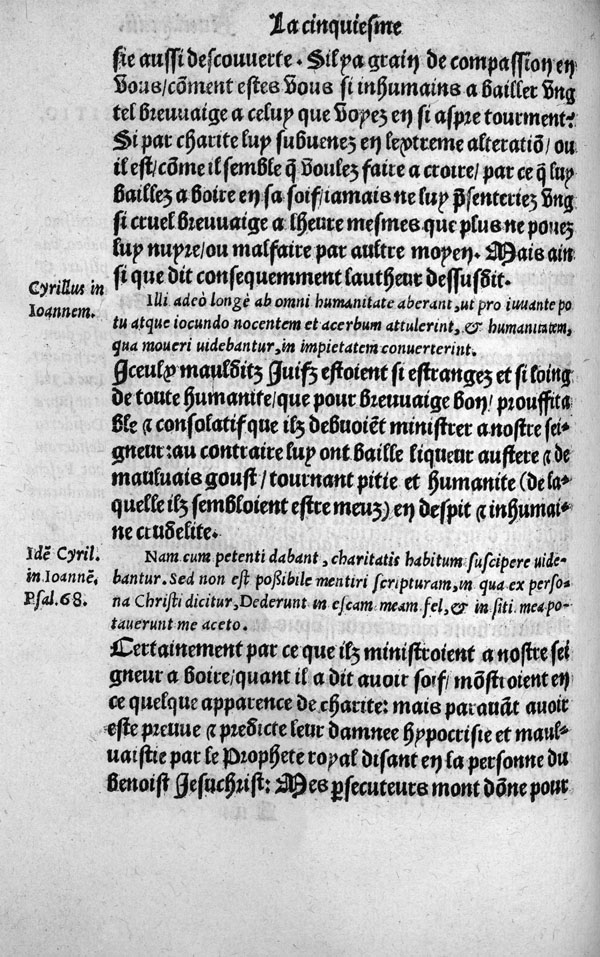 La cinquiesme
sie aussi descouverte. Sil y a grain de compassion en
vous/cōment estes vous si inhumains a bailler vng
tel breuuaige a celuy que voyez en si aspre tourment?
Si par charite luy subuenez en lextreme alteratiō/ou
il est/cōme il semble q̄ voulez faire a croire/par ce q̄ luy
baillez a boire en sa soif/iamais ne luy p̄senteriez vng
si cruel breuuaige a lheure mesmes que plus ne pouez
luy nuyre/ou malfaire par aultre moyen. Mais ain
si que dit consequemment lautheur dessusdit.
Cyrillus in
Ioannem.
Illi adeò longè ab omni humanitate aberant, ut pro iuuante po
tu atque iocundo nocentem et acerbum attulerint, & humanitatem,
qua moueri uidebantur, in impietatem conuerterint.
Iceulx maulditz Juifz estoient si estrangez et si loing
de toute humanite/que pour breuuaige bon/prouffita
ble & consolatif que ilz debuoiēt ministrer a nostre sei-
gneur: au contraire luy ont baille liqueur austere & de
mauluais goust/tournant pitie et humanite (de la-
quelle ilz sembloient estre meuz) en despit & inhumai-
ne crudelite.
Idē Cyril.
in Ioannē.
Psal. 68.
Nam cum petenti dabant, charitatis habitum suscipere uide-
bantur. Sed non est poßibile mentiri scripturam, in qua ex perso-
na Christi dicitur, Dederunt in escam meam fel, & in siti mea po-
tauerunt me aceto.
Certainement par ce que ilz ministroient a nostre sei
gneur a boire/quant il a dit auoir soif/mōstroient en
ce quelque apparence de charite: mais parauāt auoir
este preuue & predicte leur damnee hypocrisie et maul-
uaistie par le Prophete royal disant en la personne du
benoist Jesuchrist: Mes p̄secuteurs mont dōne pour